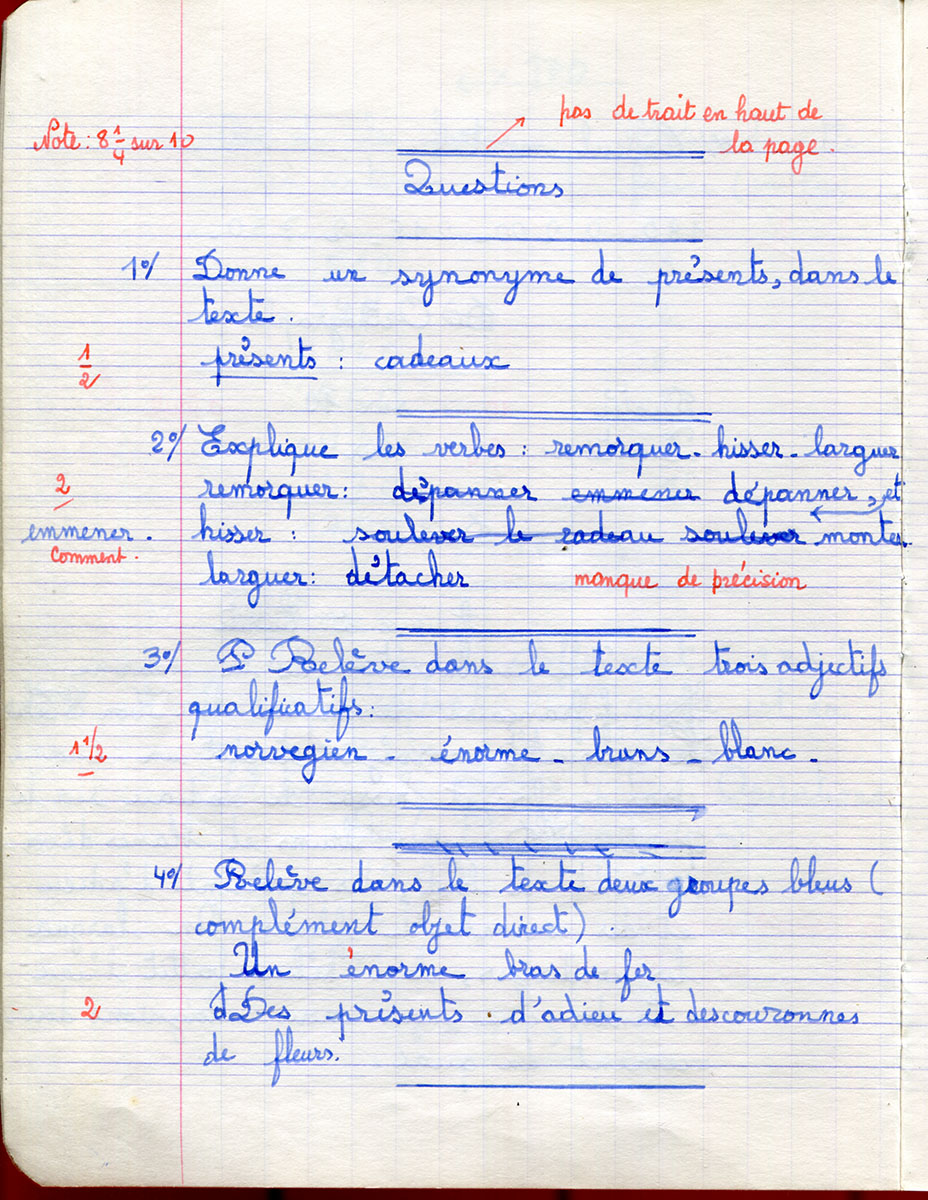 pas de trait en haut de
Note : 8 1/4 sur 10
la page.
Questions
1°/ Donne un synonyme de présents, dans le
texte.
1/2
présents : cadeaux
2°/ Explique les verbes : remorquer - hisser - larguer
2
remorquer : dépanner emmener dépanner, et
emmener.
hisser : soulever le radeau soulever monter
Comment.
larguer : détacher
manque de précision
3°/ P Relève dans le texte trois adjectifs
qualificatifs :
1 1/2
norvegien - énorme - bruns - blanc -
4°/ Relève dans le texte deux groupes bleus (
complément objet direct) .
Un énorme bras de fer
2
d Des présents d'adieu et des couronnes
de fleurs.